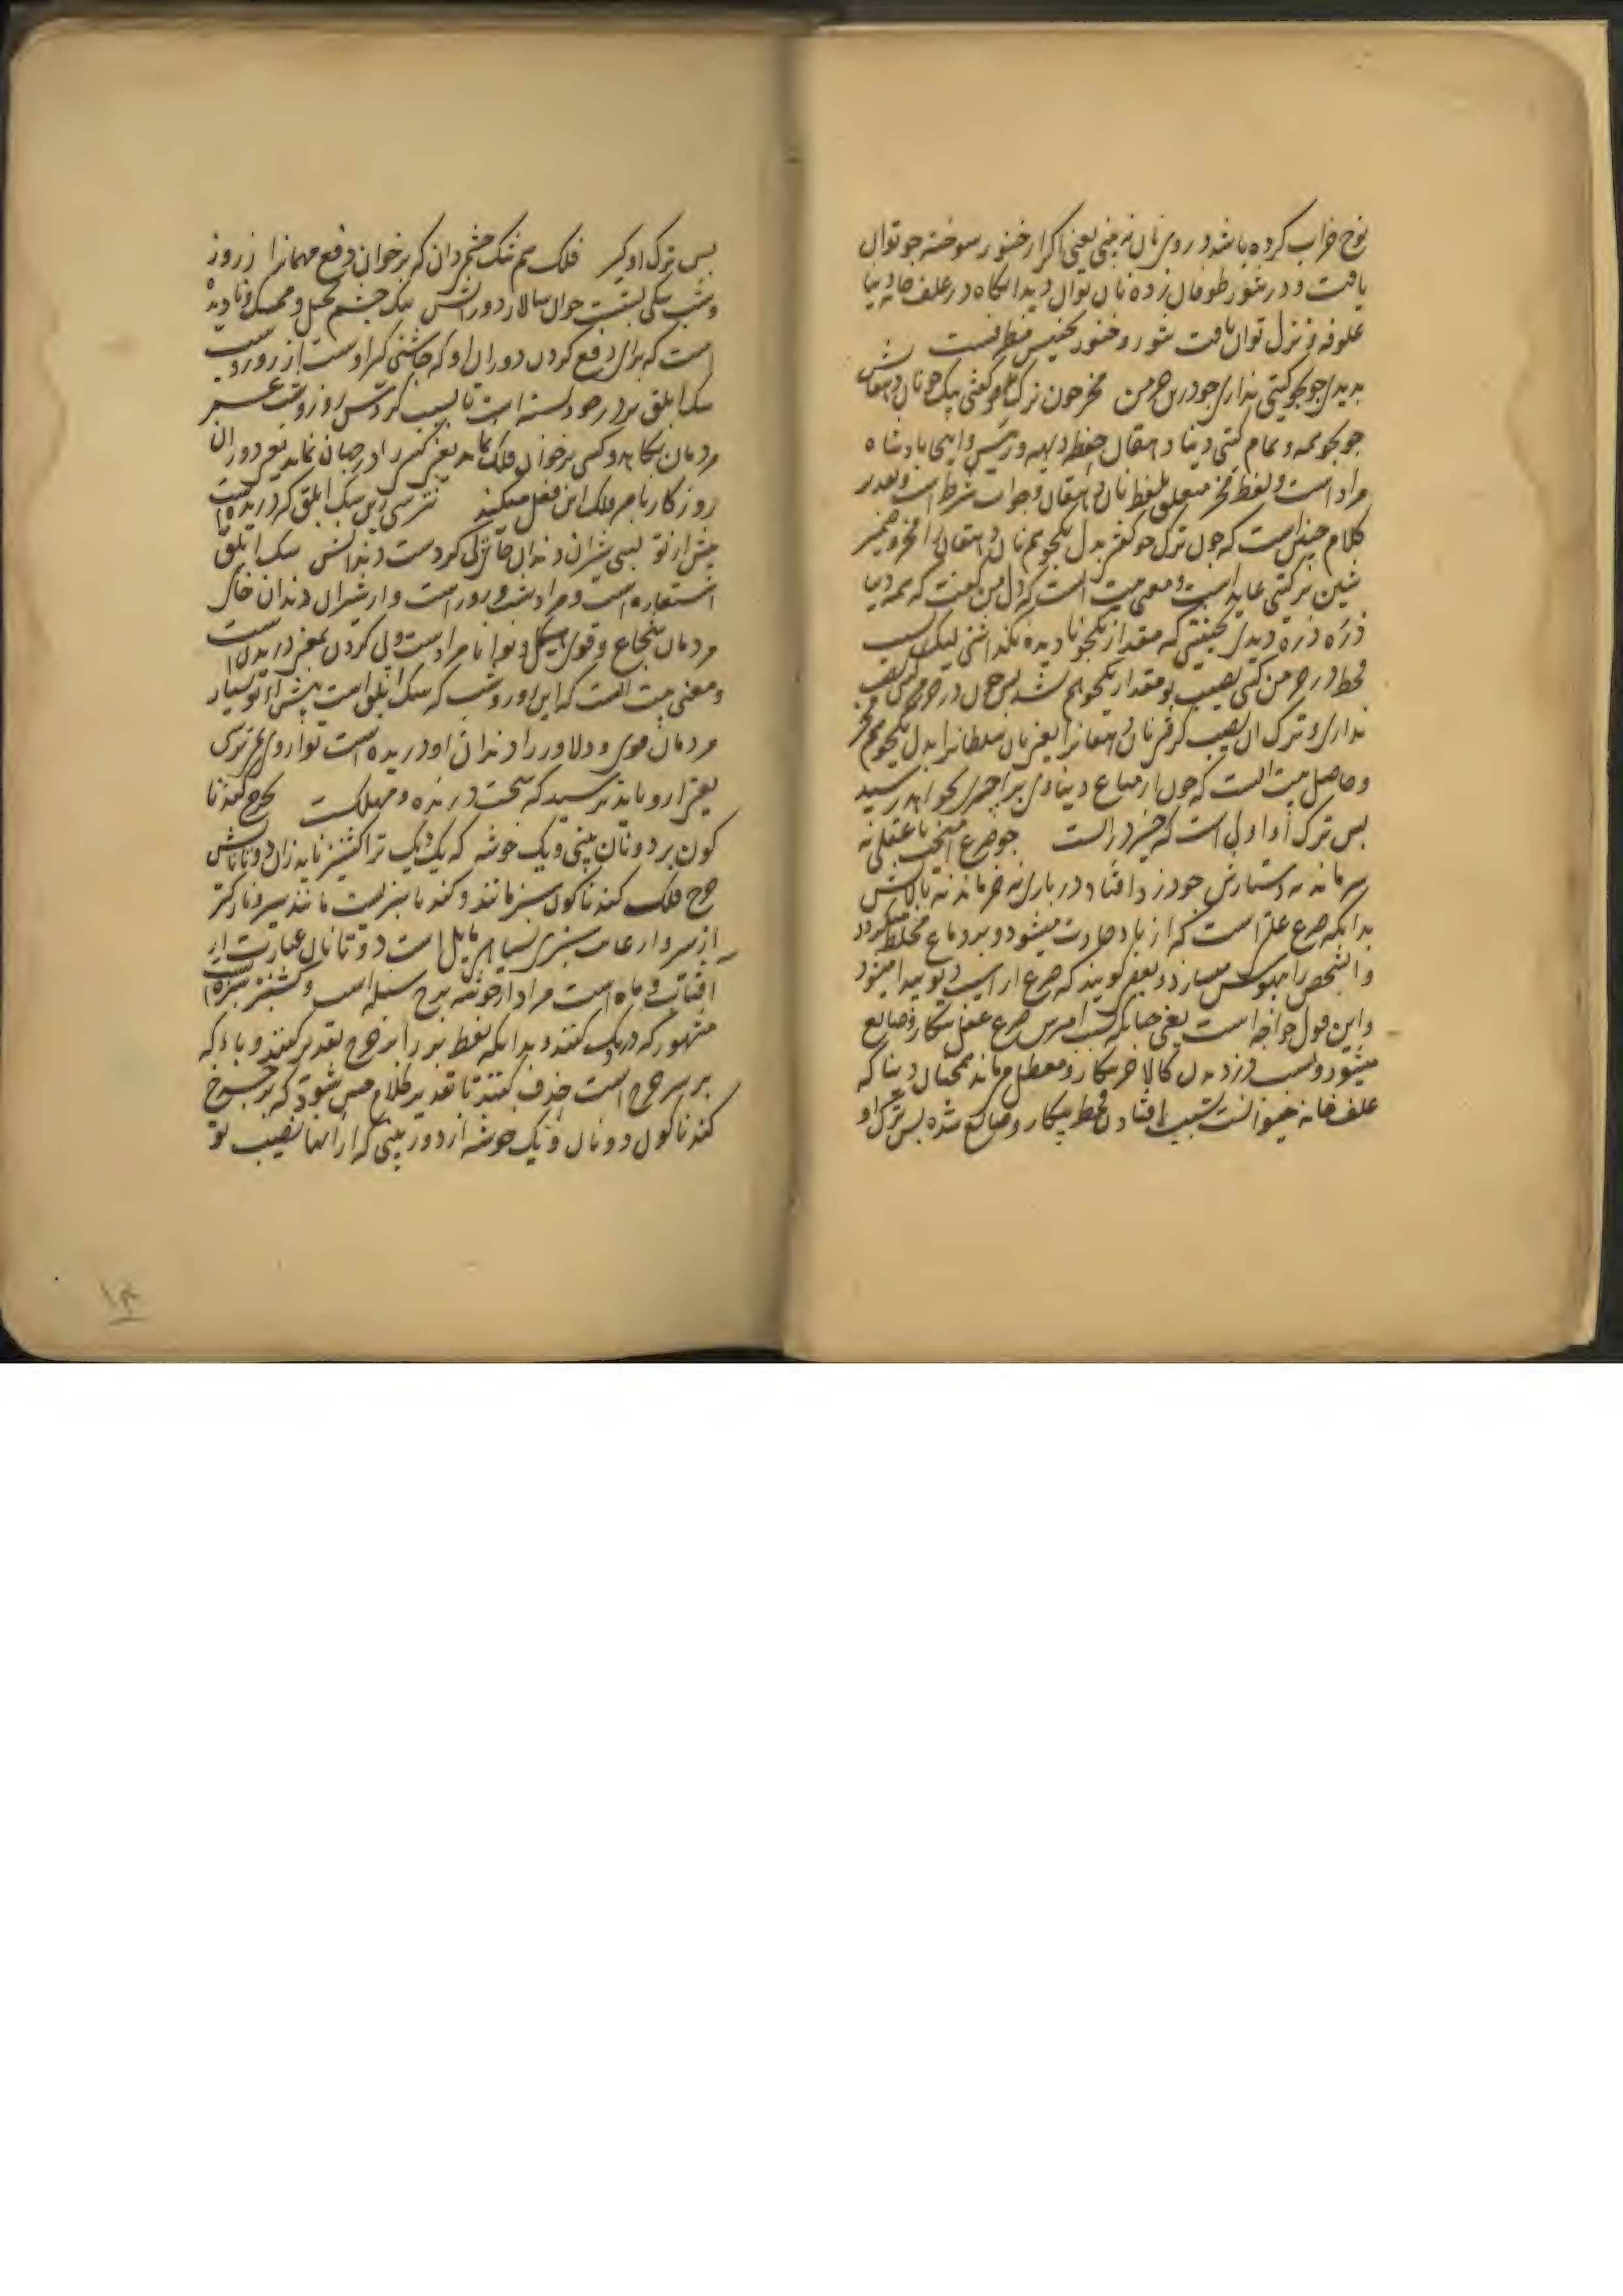 نوح خراب کرده باشد در روی نان نه بینی یعنی اگر از خنور سوخته جو توان
یافت و در تنور طوفان زده نان توان دید انگاه در علف خانه دنیا
علوفه و نزل توان یافت تنور و خنور تجنیس
بدیدی جو بجو گیتی نداری جو درین خرمن مخر چون ترک جو گفتی بیک جو نان دهقانش
جو بجو همه و تمام گیتی دنیا دهقان حافظ دیهه و رئیس و اینجا پادشاه
مراد است و لفظ مخر متعلق بلفظ نان دهقان و جواب شرط است و تقدیر
کلام چنین است که چون ترک جو گفتی بدل یکجو هم نان دهقان را مخر و ضمیر
شین بر گیتی عاید است و معنی بیت انست که دل من گفت که همه دنیا
ذره ذره دیدی بحیثیتی که مقدار یکجو نادیده نگذاشتی لیک بسبب
قحط در خرمن گیتی نصیب تو مقدار یکجو هم نشد پس چون در خرمن گیتی نصیب
نداری و ترک ان نصیب گرفتی نان دهقانرا یعنی نان سلطانرا بدل یکجو هم مخر
و حاصل بیت انست که چون از متاع دنیاوی برا چیزی نخواهد رسید
پس ترک او اولی است که خیر در انست چو صرع امیخت با عقلی نه
سر ماند نه دستارش چو دزد افتاد در باری نه خر ماند نه پالانش
بدانکه صرع علتی است که از باد حادث میشود و بر دماغ مختلط میگردد
و انشخص را بیهوش میسازد و بعضی گویند که صرع از اسیب دیو پیدا میشود
و این قول خواجه است یعنی چنانکه بسبب امرس صرع عقل بیکار و ضایع
میشود و بسبب دزد بدن کالا خر بیکار و معطل میماند همچنان دنیا که
علف خانه حیوانست بسبب افتادن قحط بیکار و ضایع شده پس ترک او
پس ترک او گیر فلک هم تنگ چشمی دان که بر خوان دفع مهمانرا ز روز
و شب سگی بستست خوان سالار دورانش تنگ چشم بخیل و ممسک و نادیده
است که برای دفع کردن دوران او که چاشنی گیر اوست از روز و شب
سگ ابلق بر در خود بسته است تا بسبب گردش روز و شب عمر
مردمان بکاهد و کسی بر خوان فلک نماند یعنی کسی را در جهان نماند یعنی دوران
روزگار با مر فلک این فعل میکند نترسی زین سگ ابلق که دریده است
پیش از تو بسی شیران دندان خای کردست دندانش سگ ابلق
استعاره است و مراد شب و روز است و از شیران دندان خای
مردمان شجاع و قوی هیکل و توانا مراد است ولی کردن بمعنی دریدن است
و معنی بیت انست که این روز و شب که سگ ابلق است پیش از تو بسیار
مردمان قوی و دلاور را دندان او دریده است تو از وی هم ترسی
یعنی از و باید ترسید که سخت درنده و مهلکست بچرخ گندنا
گون بر دو نان بینی و یک خوشه که یک دیگ ترا گشنیز ناید زان دو تا نانش
چرخ فلک گندناگون سبز مانند و گندنا سبزیست مانند سیر و نازکتر
از سیر و از غایت سبزی بسیاهی مایل است دو تا نان عبارت از
افتاب و ماه است مراد از خوشه برج سنبله است و گشنیز سبزه است
مشهور که در دیگ کنند و بدانکه لفظ بر را بر چرخ تقدیر کنند و با که
بر سر چرخ است حذف کنند تا تقدیر کلام چنین شود که بر چرخ
گندناگون دو نان و یک خوشه از دور بینی که از انها نصیب تو
۱۴